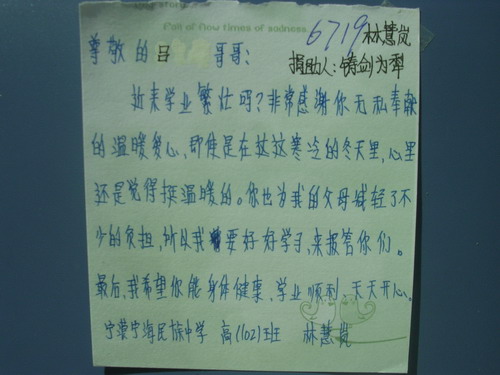 Fall of flow times of sadness.
6719林慧岚
捐助人:铸剑为犁
尊敬的吕 哥哥:
近来学业繁忙吗?非常感谢你无私奉献
的温暖爱心,即使是在这寒冷的冬天里,心里
还是觉得挺温暖的。你也为我的父母减轻了不
少的负担,所以我要好好学习,来报答你们。
最后,我希望你能身体健康、学业顺利、天天开心。
宁蒗宁海民族中学 高(102)班 林慧岚